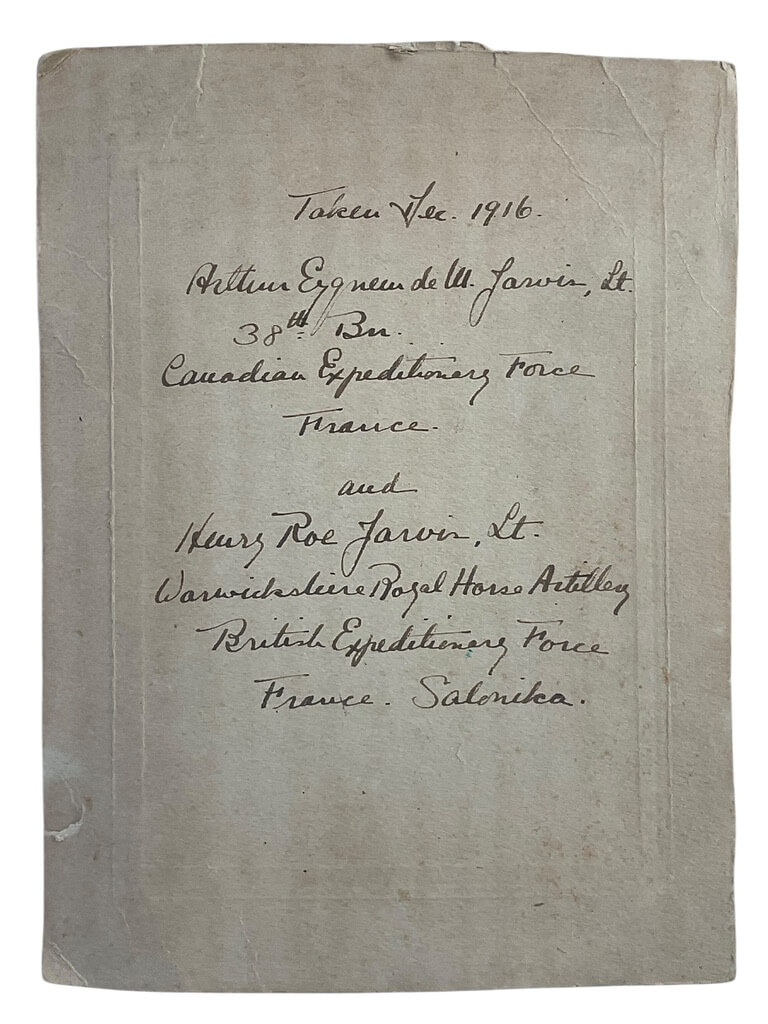 Taken Dec. 1916.
Arthur de M. Jarvis, Lt.
38th Bn.
Canadian Expeditionary Force
France.
and
Henry Roe Jarvis, Lt.
Warwickshire Royal Horse Artillery
British Expeditionary Force
France. Salonika.